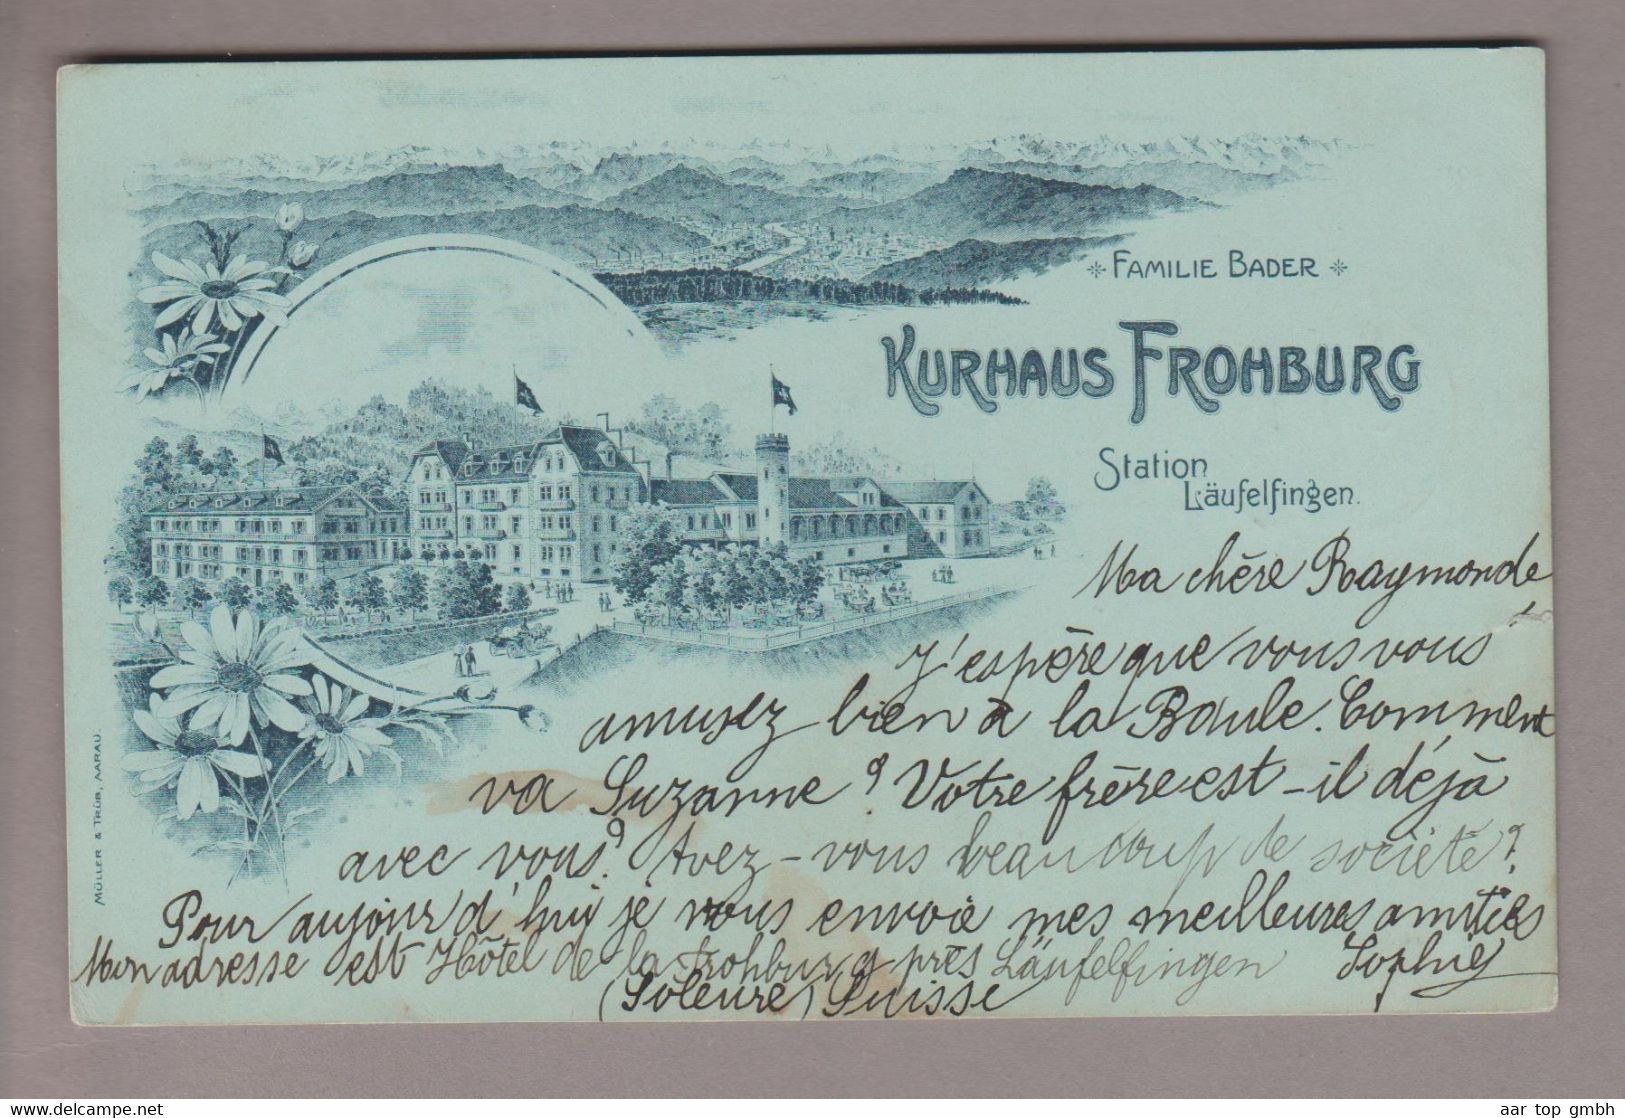 * FAMILIE BADER *
KURHAUS FROHBURG
Station
Läufelfingen.
Ma chère Raymonde
J'espère que vous vous
amusez bien à la Baule. Comment
va Suzanne? Votre frère est-il déjà
avec vous? Avez-vous beaucoup de société?
Pour aujourd'hui je vous envoie mes meilleures amitiés
Mon adresse est Hôtel de la Frohburg près Läufelfingen Sophie
(Soleure) Suisse
MÜLLER & TRÜB, AARAU.
www.delcampe.net
aar top gmbh